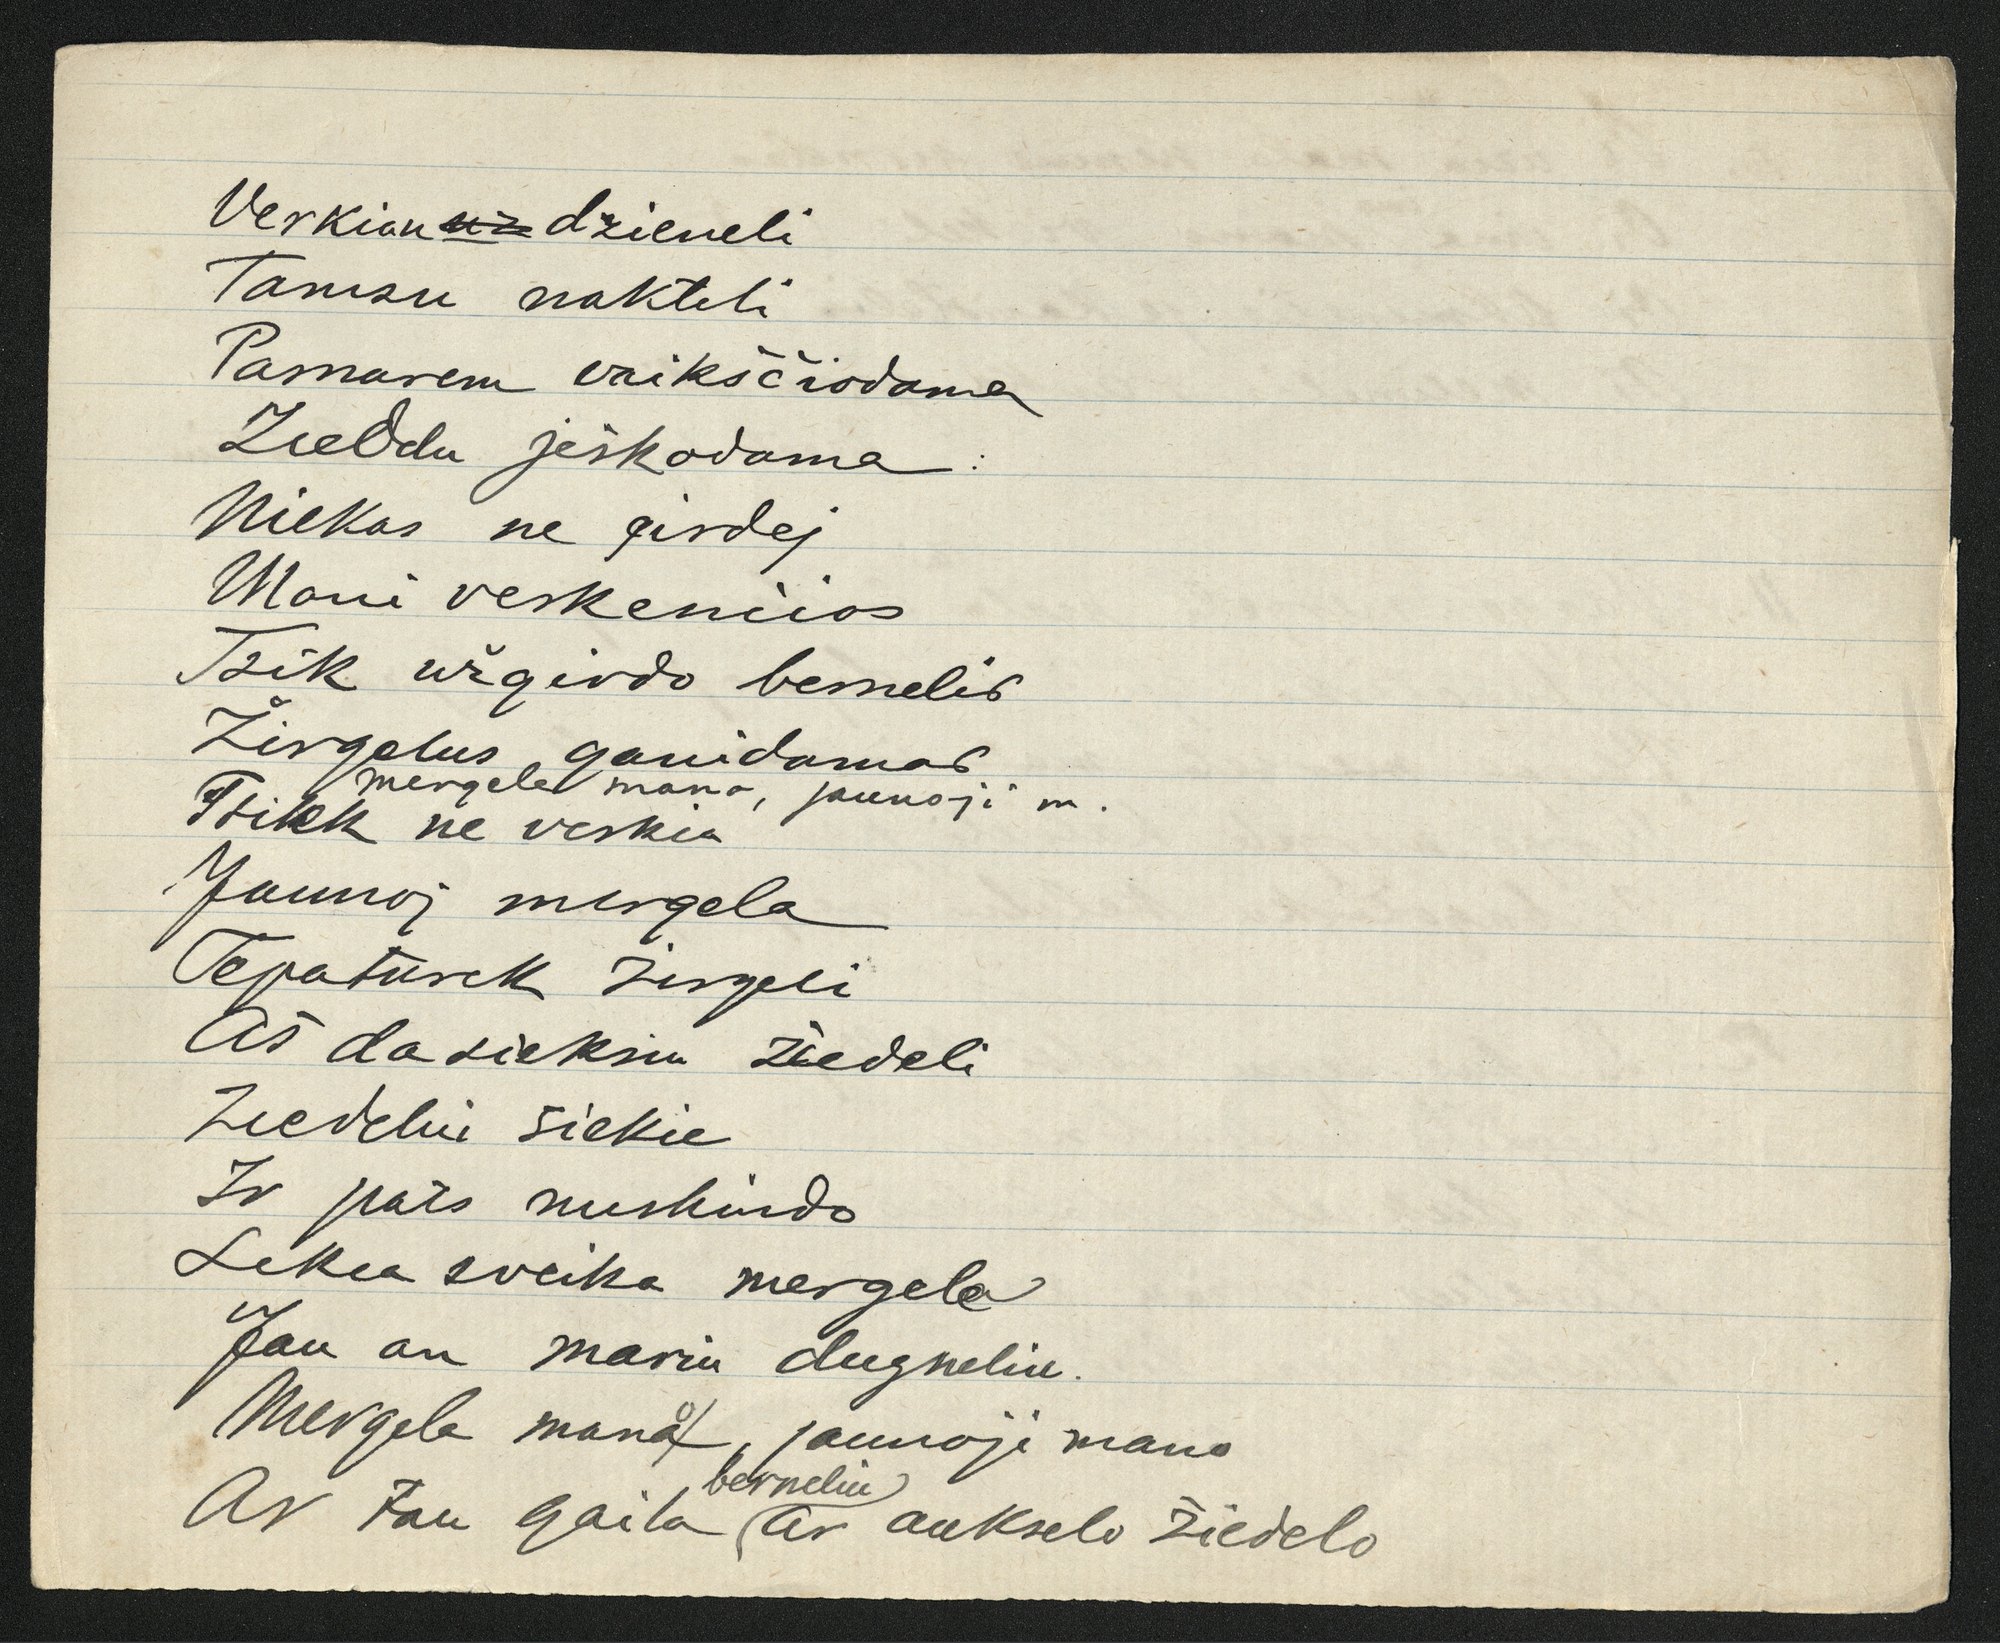 Verkiau už dzieneli
Tamsu nakteli
Pamarem vaikščiodama
Zieddu jėškodama :
Niekas ne girdej
Mani verkenčios
Tsik užgirdo bernelis
Žirgelus ganidamas
mergele mano, jaunoji m.
Tsikk ne verkia
Jaunoj mergela
Tepaturek žirgeli
Aš dasieksiu žiedeli
Ziedeliu siekie
Ir pats nuskindo
Lekia sveika mergele
Jau an mariu dugneliu.
Mergele mano, jaunoji mano
berneliu
Ar tau gaila (Ar aukselo žiedelo